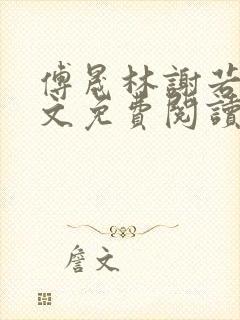 傅晟林謝若
文免費閱讀
詹文